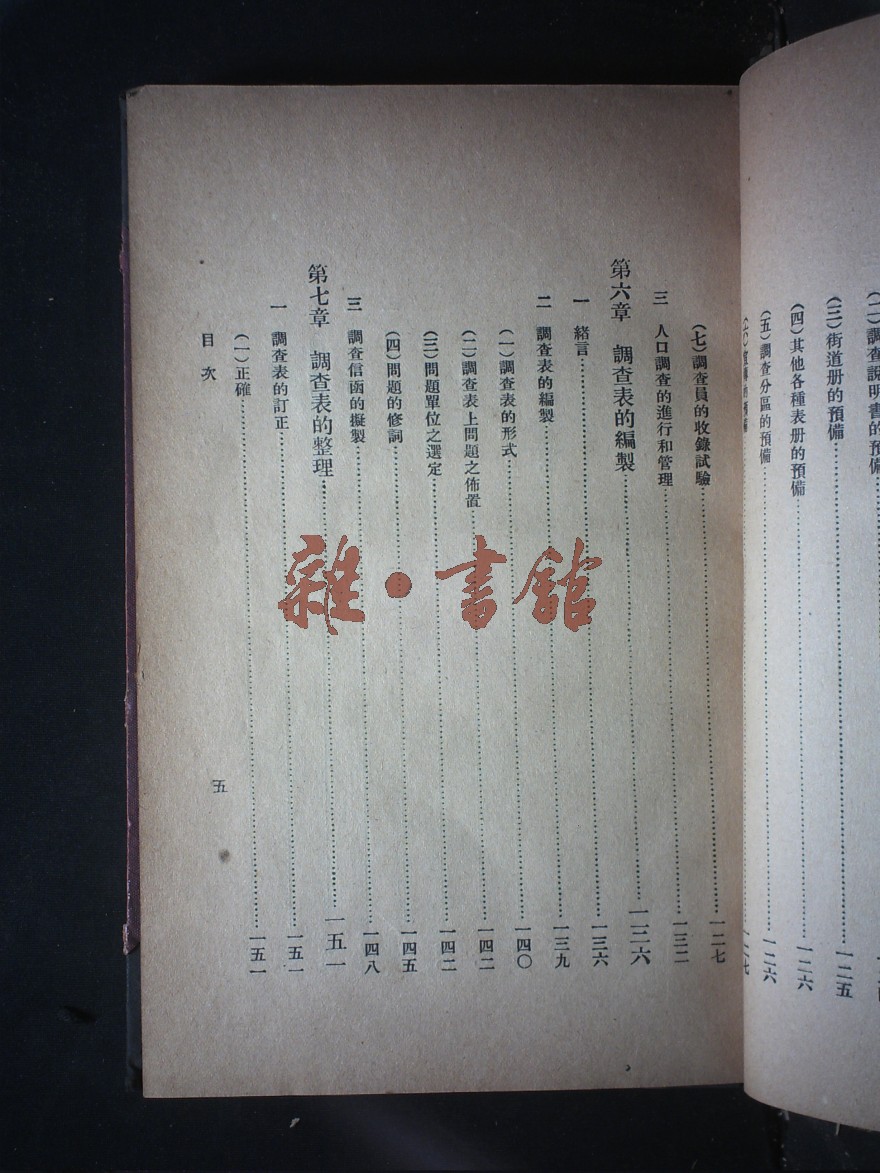 調查說明書的預備
(三)街道册的預備……一二五
(四)其他各種表册的預備……一二六
(五)調查分區的預備……一二六
(六)宣傳的預備……一二七
(七)調查員的收錄試驗……一二七
三 人口調查的進行和管理……一三二
第六章 調查表的編製……一三六
一 緒言……一三六
二 調查表的編製……一三九
(一)調查表的形式……一四〇
(二)調查表上問題之佈置……一四二
(三)問題單位之選定……一四二
(四)問題的修詞……一四五
三 調查信函的擬製……一四八
第七章 調查表的整理……一五一
一 調查表的訂正……一五一
(一)正確……一五一
目次
五
雜·書館